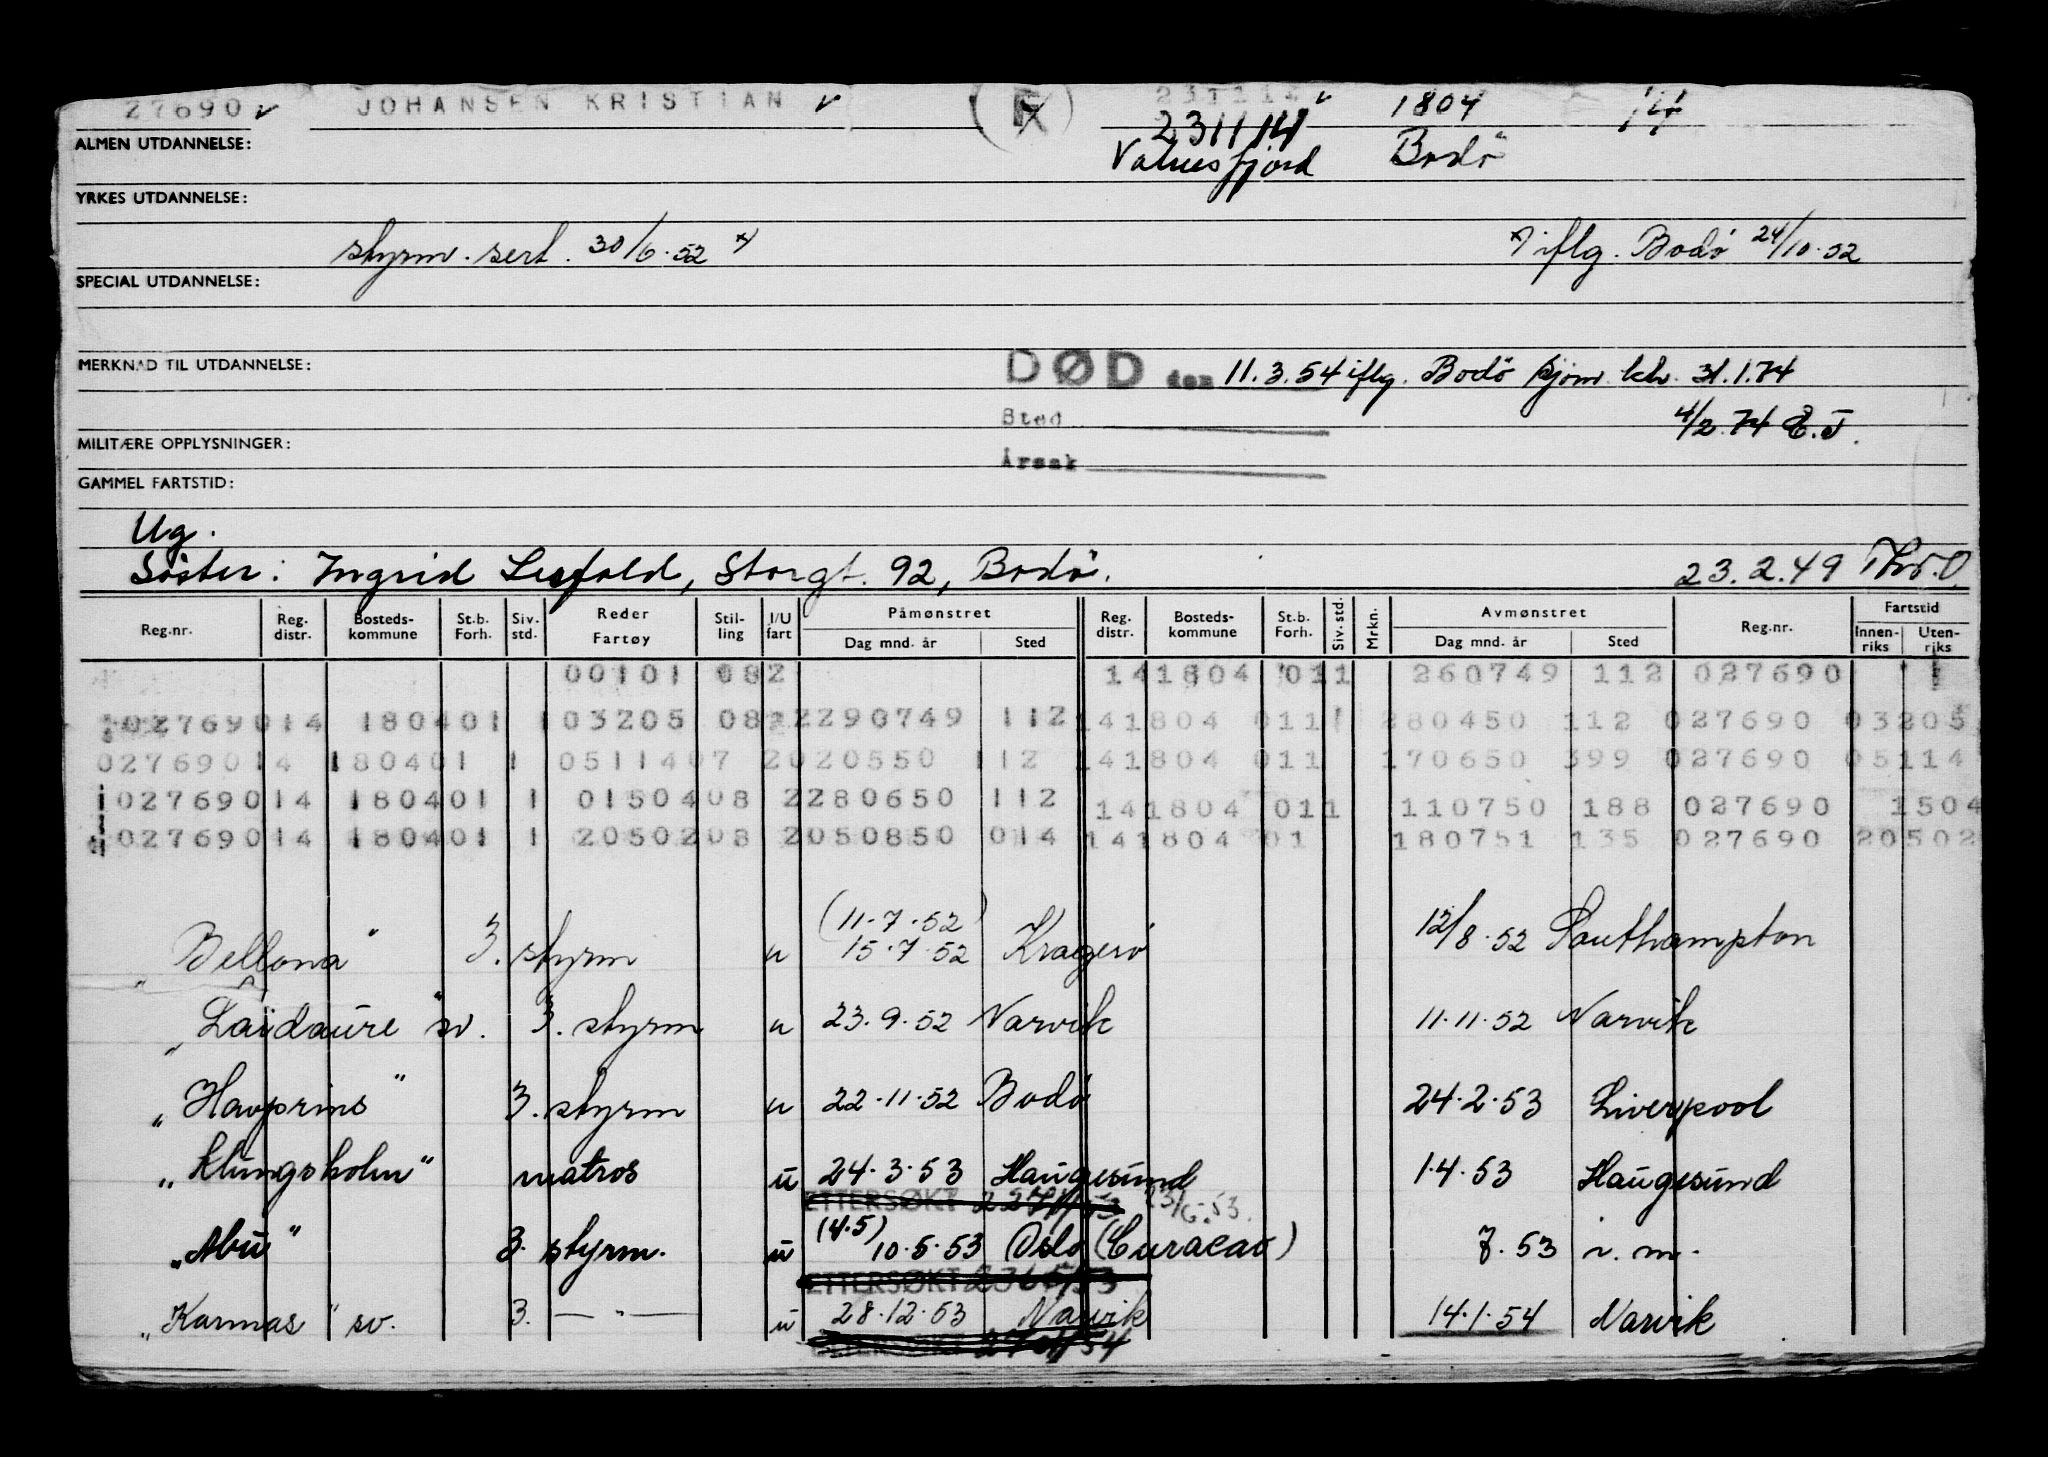 27690 JOHANSEN KRISTIAN 231114 1804 14
231114
ALMEN UTDANNELSE: Valnesfjord Bodö
YRKES UTDANNELSE:
styrm. sert. 30/6.52 x) x) iflg. Bodö 24/10.52
SPECIAL UTDANNELSE:
MERKNAD TIL UTDANNELSE: DØD den 11.3.54 iflg. Bodö sjöm. ktr. 31.1.74
Sted 4/2 74 E.J.
MILITÆRE OPPLYSNINGER:
Årsak
GAMMEL FARTSTID:
Ug.
Söster: Ingrid Storgt. 92, Bodö. 23.2.49
Reg.nr. Reg. distr. Bosteds-kommune St.b. Forh. Siv. std. Reder Fartøy Stil-ling I/U fart Påmønstret Dag mnd. år Sted Reg. distr. Bosteds-kommune St.b. Forh. Siv. std. Mrkn. Avmønstret Dag mnd. år Sted Reg.nr. Fartstid Innen-riks Uten-riks
00101 082 141804 011 260749 112 027690 1
02769014 180401 103205 082 2290749 112 141804 011 280450 112 027690 03205
02769014 180401 1 0511407 2020550 112 141804 011 170650 399 027690 05114
02769014 180401 1 0150408 2280650 112 141804 011 110750 188 027690 1504
02769014 180401 1 2050208 2050850 014 141804 01 180751 135 027690 20502
(11-7-52)
"Bellona" 3. styrm u 15.7.52 Kragerö 12/8.52 Southampton
"Laidaure" sv. 3. styrm u 23.9.52 Narvik 11.11.52 Narvik
"Havprins" 3. styrm u 22.11.52 Bodö 24.2.53 Liverpool
"Klungsholm" matros u 24.3.53 Haugesund 1.4.53 Haugesund
ETTERSØKT 23/6.53.
(4.5)
"Abu" 3. styrm. u 10.5.53 Oslo (Curacao) 7.53 n.m.
ETTERSØKT
"Karmas" sv. 3. — " — u 28.12.53 Narvik 14.1.54 Narvik
ETTERSØKT